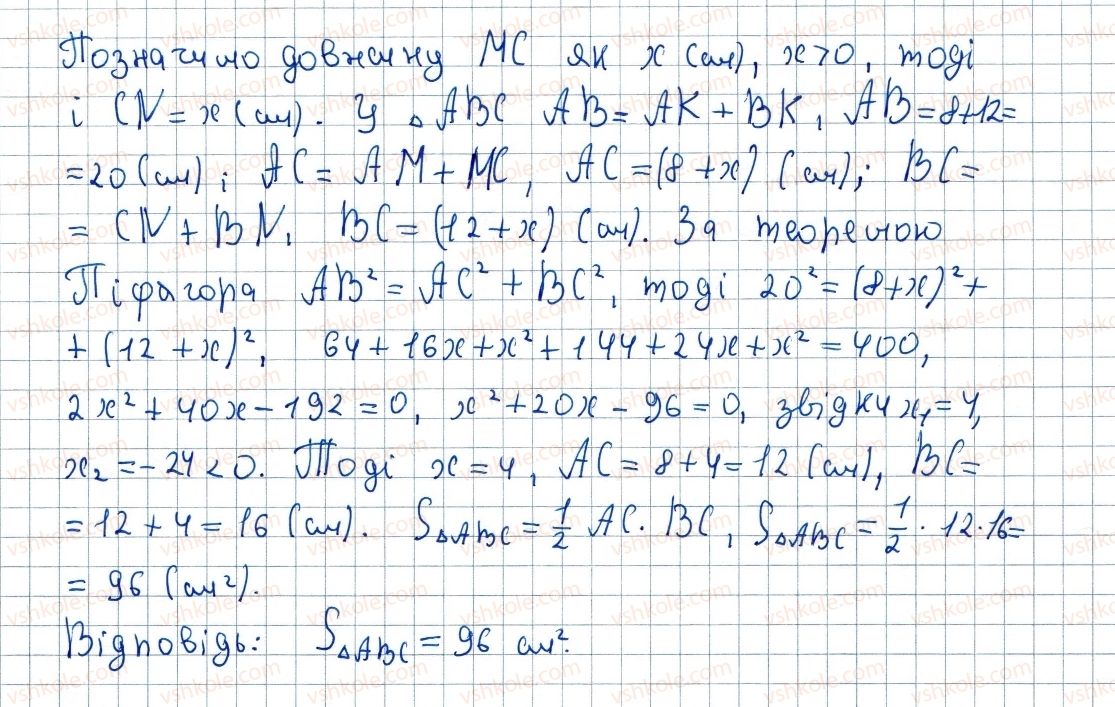 Позначимо довжину MC як x (см), x>0, тоді
і CN = x (см). У △ABC AB = AK + BK, AB = 8+12=
=20 (см); AC = AM + MC, AC = (8 + x) (см); BC =
= CN + BN, BC = (12 + x) (см). За теоремою
Піфагора AB² = AC² + BC², тоді 20² = (8+x)² +
+ (12 + x)², 64 + 16x + x² + 144 + 24x + x² = 400,
2x² + 40x - 192 = 0, x² + 20x - 96 = 0, звідки x₁ = 4,
x₂ = -24 < 0. Тоді x = 4, AC = 8 + 4 = 12 (см), BC =
= 12 + 4 = 16 (см). S△ABC = 1/2 AC · BC, S△ABC = 1/2 · 12 · 16 =
= 96 (см²).
Відповідь: S△ABC = 96 см².